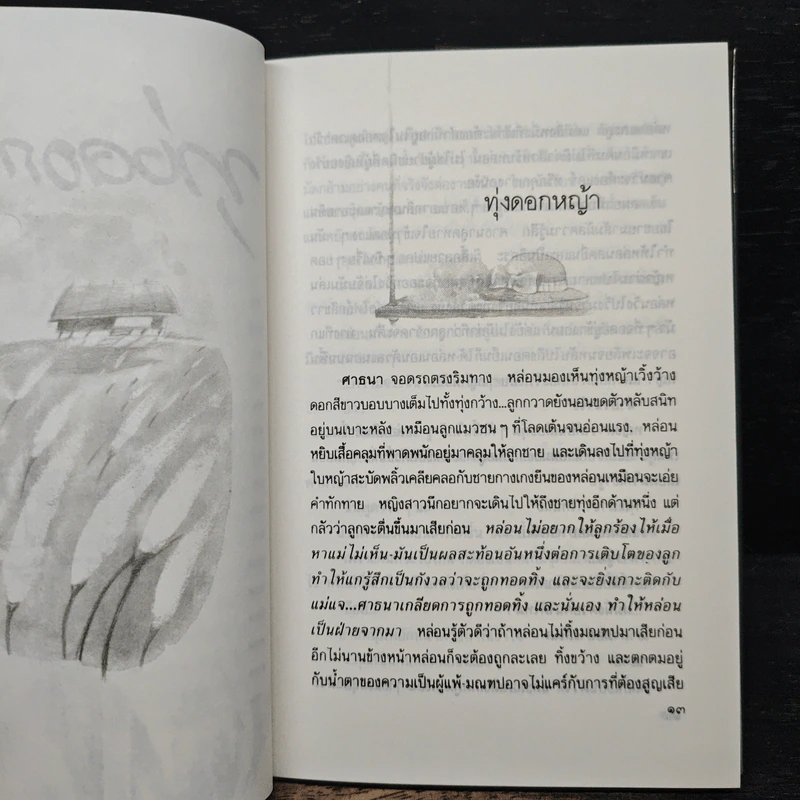 ทุ่งดอกหญ้า
ศาธนา จอดรถตรงริมทาง หล่อนมองเห็นทุ่งหญ้าเวิ้งว้าง
ดอกสีขาวบอบบางเต็มไปทั้งทุ่งกว้าง...ลูกกวาดยังนอนขดตัวหลับสนิท
อยู่บนเบาะหลัง เหมือนลูกแมวซน ๆ ที่โลดเต้นจนอ่อนแรง. หล่อน
หยิบเสื้อคลุมที่พาดพนักอยู่มาคลุมให้ลูกชาย และเดินลงไปที่ทุ่งหญ้า
ใบหญ้าสะบัดพลิ้วเคลียคลอกับชายกางเกงยีนของหล่อนเหมือนจะเอ่ย
คำทักทาย หญิงสาวนึกอยากจะเดินไปให้ถึงชายทุ่งอีกด้านหนึ่ง แต่
กลัวว่าลูกจะตื่นขึ้นมาเสียก่อน หล่อนไม่อยากให้ลูกร้องไห้เมื่อ
หาแม่ไม่เห็น-มันเป็นผลสะท้อนอันหนึ่งต่อการเติบโตของลูก
ทำให้แกรู้สึกเป็นกังวลว่าจะถูกทอดทิ้ง และจะยิ่งเกาะติดกับ
แม่แจ...ศาธนาเกลียดการถูกทอดทิ้ง และนั่นเอง ทำให้หล่อน
เป็นฝ่ายจากมา หล่อนรู้ตัวดีว่าถ้าหล่อนไม่ทิ้งมณฑปมาเสียก่อน
อีกไม่นานข้างหน้าหล่อนก็จะต้องถูกละเลย ทิ้งขว้าง และตกตมอยู่
กับน้ำตาของความเป็นผู้แพ้-มณฑปอาจไม่แคร์กับการที่ต้องสูญเสีย
๑๓